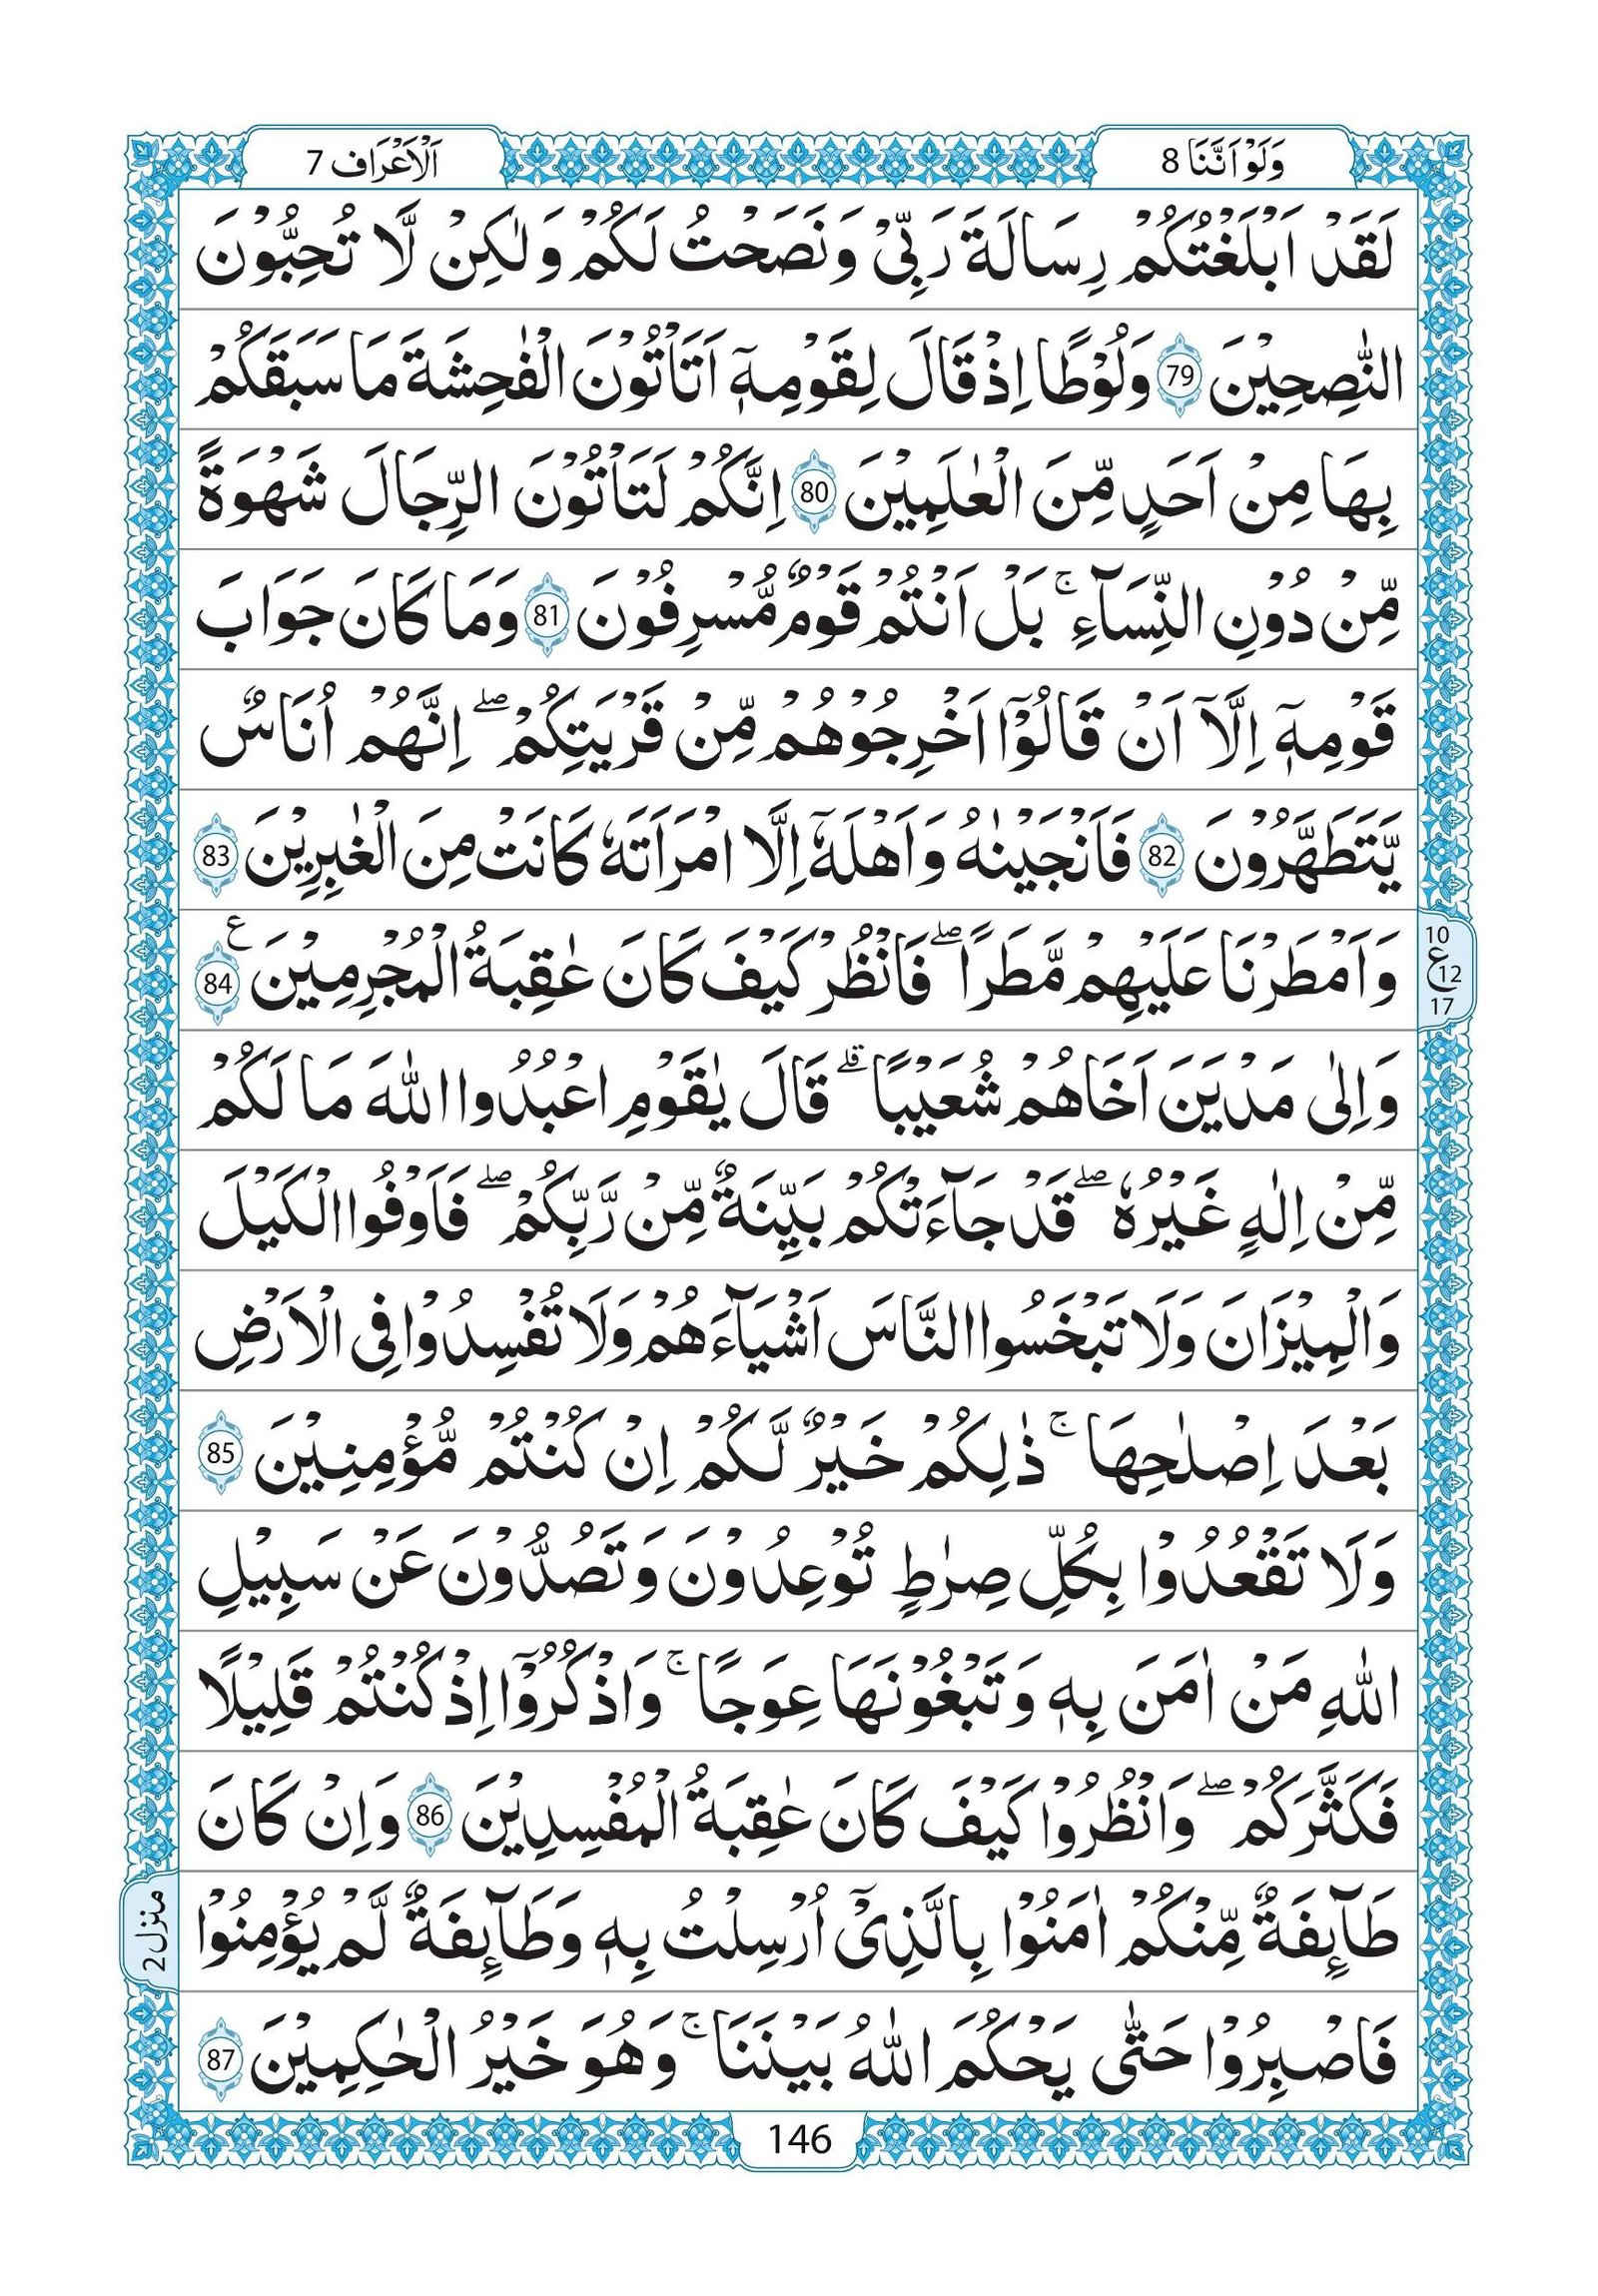 وَلَوْ اَنَّنَا 8
اَلْاَعْرَاف 7
لَقَدْ اَبْلَغْتُكُمْ رِسَالَةَ رَبِّيْ وَنَصَحْتُ لَكُمْ وَلٰكِنْ لَّا تُحِبُّوْنَ
النّٰصِحِيْنَ 79 وَلُوْطًا اِذْ قَالَ لِقَوْمِهٖۤ اَتَاْتُوْنَ الْفٰحِشَةَ مَا سَبَقَكُمْ
بِهَا مِنْ اَحَدٍ مِّنَ الْعٰلَمِيْنَ 80 اِنَّكُمْ لَتَاْتُوْنَ الرِّجَالَ شَهْوَةً
مِّنْ دُوْنِ النِّسَآءِ ۚ بَلْ اَنْتُمْ قَوْمٌ مُّسْرِفُوْنَ 81 وَمَا كَانَ جَوَابَ
قَوْمِهٖۤ اِلَّاۤ اَنْ قَالُوْۤا اَخْرِجُوْهُمْ مِّنْ قَرْيَتِكُمْ ۖ اِنَّهُمْ اُنَاسٌ
يَّتَطَهَّرُوْنَ 82 فَاَنْجَيْنٰهُ وَاَهْلَهٗۤ اِلَّا امْرَاَتَهٗ كَانَتْ مِنَ الْغٰبِرِيْنَ 83
وَاَمْطَرْنَا عَلَيْهِمْ مَّطَرًا ۖ فَانْظُرْ كَيْفَ كَانَ عٰقِبَةُ الْمُجْرِمِيْنَ 84 ع
10
ع 12
17
وَاِلٰى مَدْيَنَ اَخَاهُمْ شُعَيْبًا ۗ قَالَ يٰقَوْمِ اعْبُدُوا اللّٰهَ مَا لَكُمْ
مِّنْ اِلٰهٍ غَيْرُهٗ ۖ قَدْ جَآءَتْكُمْ بَيِّنَةٌ مِّنْ رَّبِّكُمْ ۖ فَاَوْفُوا الْكَيْلَ
وَالْمِيْزَانَ وَلَا تَبْخَسُوا النَّاسَ اَشْيَآءَهُمْ وَلَا تُفْسِدُوْا فِى الْاَرْضِ
بَعْدَ اِصْلٰحِهَا ۚ ذٰلِكُمْ خَيْرٌ لَّكُمْ اِنْ كُنْتُمْ مُّؤْمِنِيْنَ 85
وَلَا تَقْعُدُوْا بِكُلِّ صِرٰطٍ تُوْعِدُوْنَ وَتَصُدُّوْنَ عَنْ سَبِيْلِ
اللّٰهِ مَنْ اٰمَنَ بِهٖ وَتَبْغُوْنَهَا عِوَجًا ۚ وَاذْكُرُوْۤا اِذْ كُنْتُمْ قَلِيْلًا
فَكَثَّرَكُمْ ۖ وَانْظُرُوْا كَيْفَ كَانَ عٰقِبَةُ الْمُفْسِدِيْنَ 86 وَاِنْ كَانَ
طَآئِفَةٌ مِّنْكُمْ اٰمَنُوْا بِالَّذِيْۤ اُرْسِلْتُ بِهٖ وَطَآئِفَةٌ لَّمْ يُؤْمِنُوْا
فَاصْبِرُوْا حَتّٰى يَحْكُمَ اللّٰهُ بَيْنَنَا ۚ وَهُوَ خَيْرُ الْحٰكِمِيْنَ 87
منزل 2
146